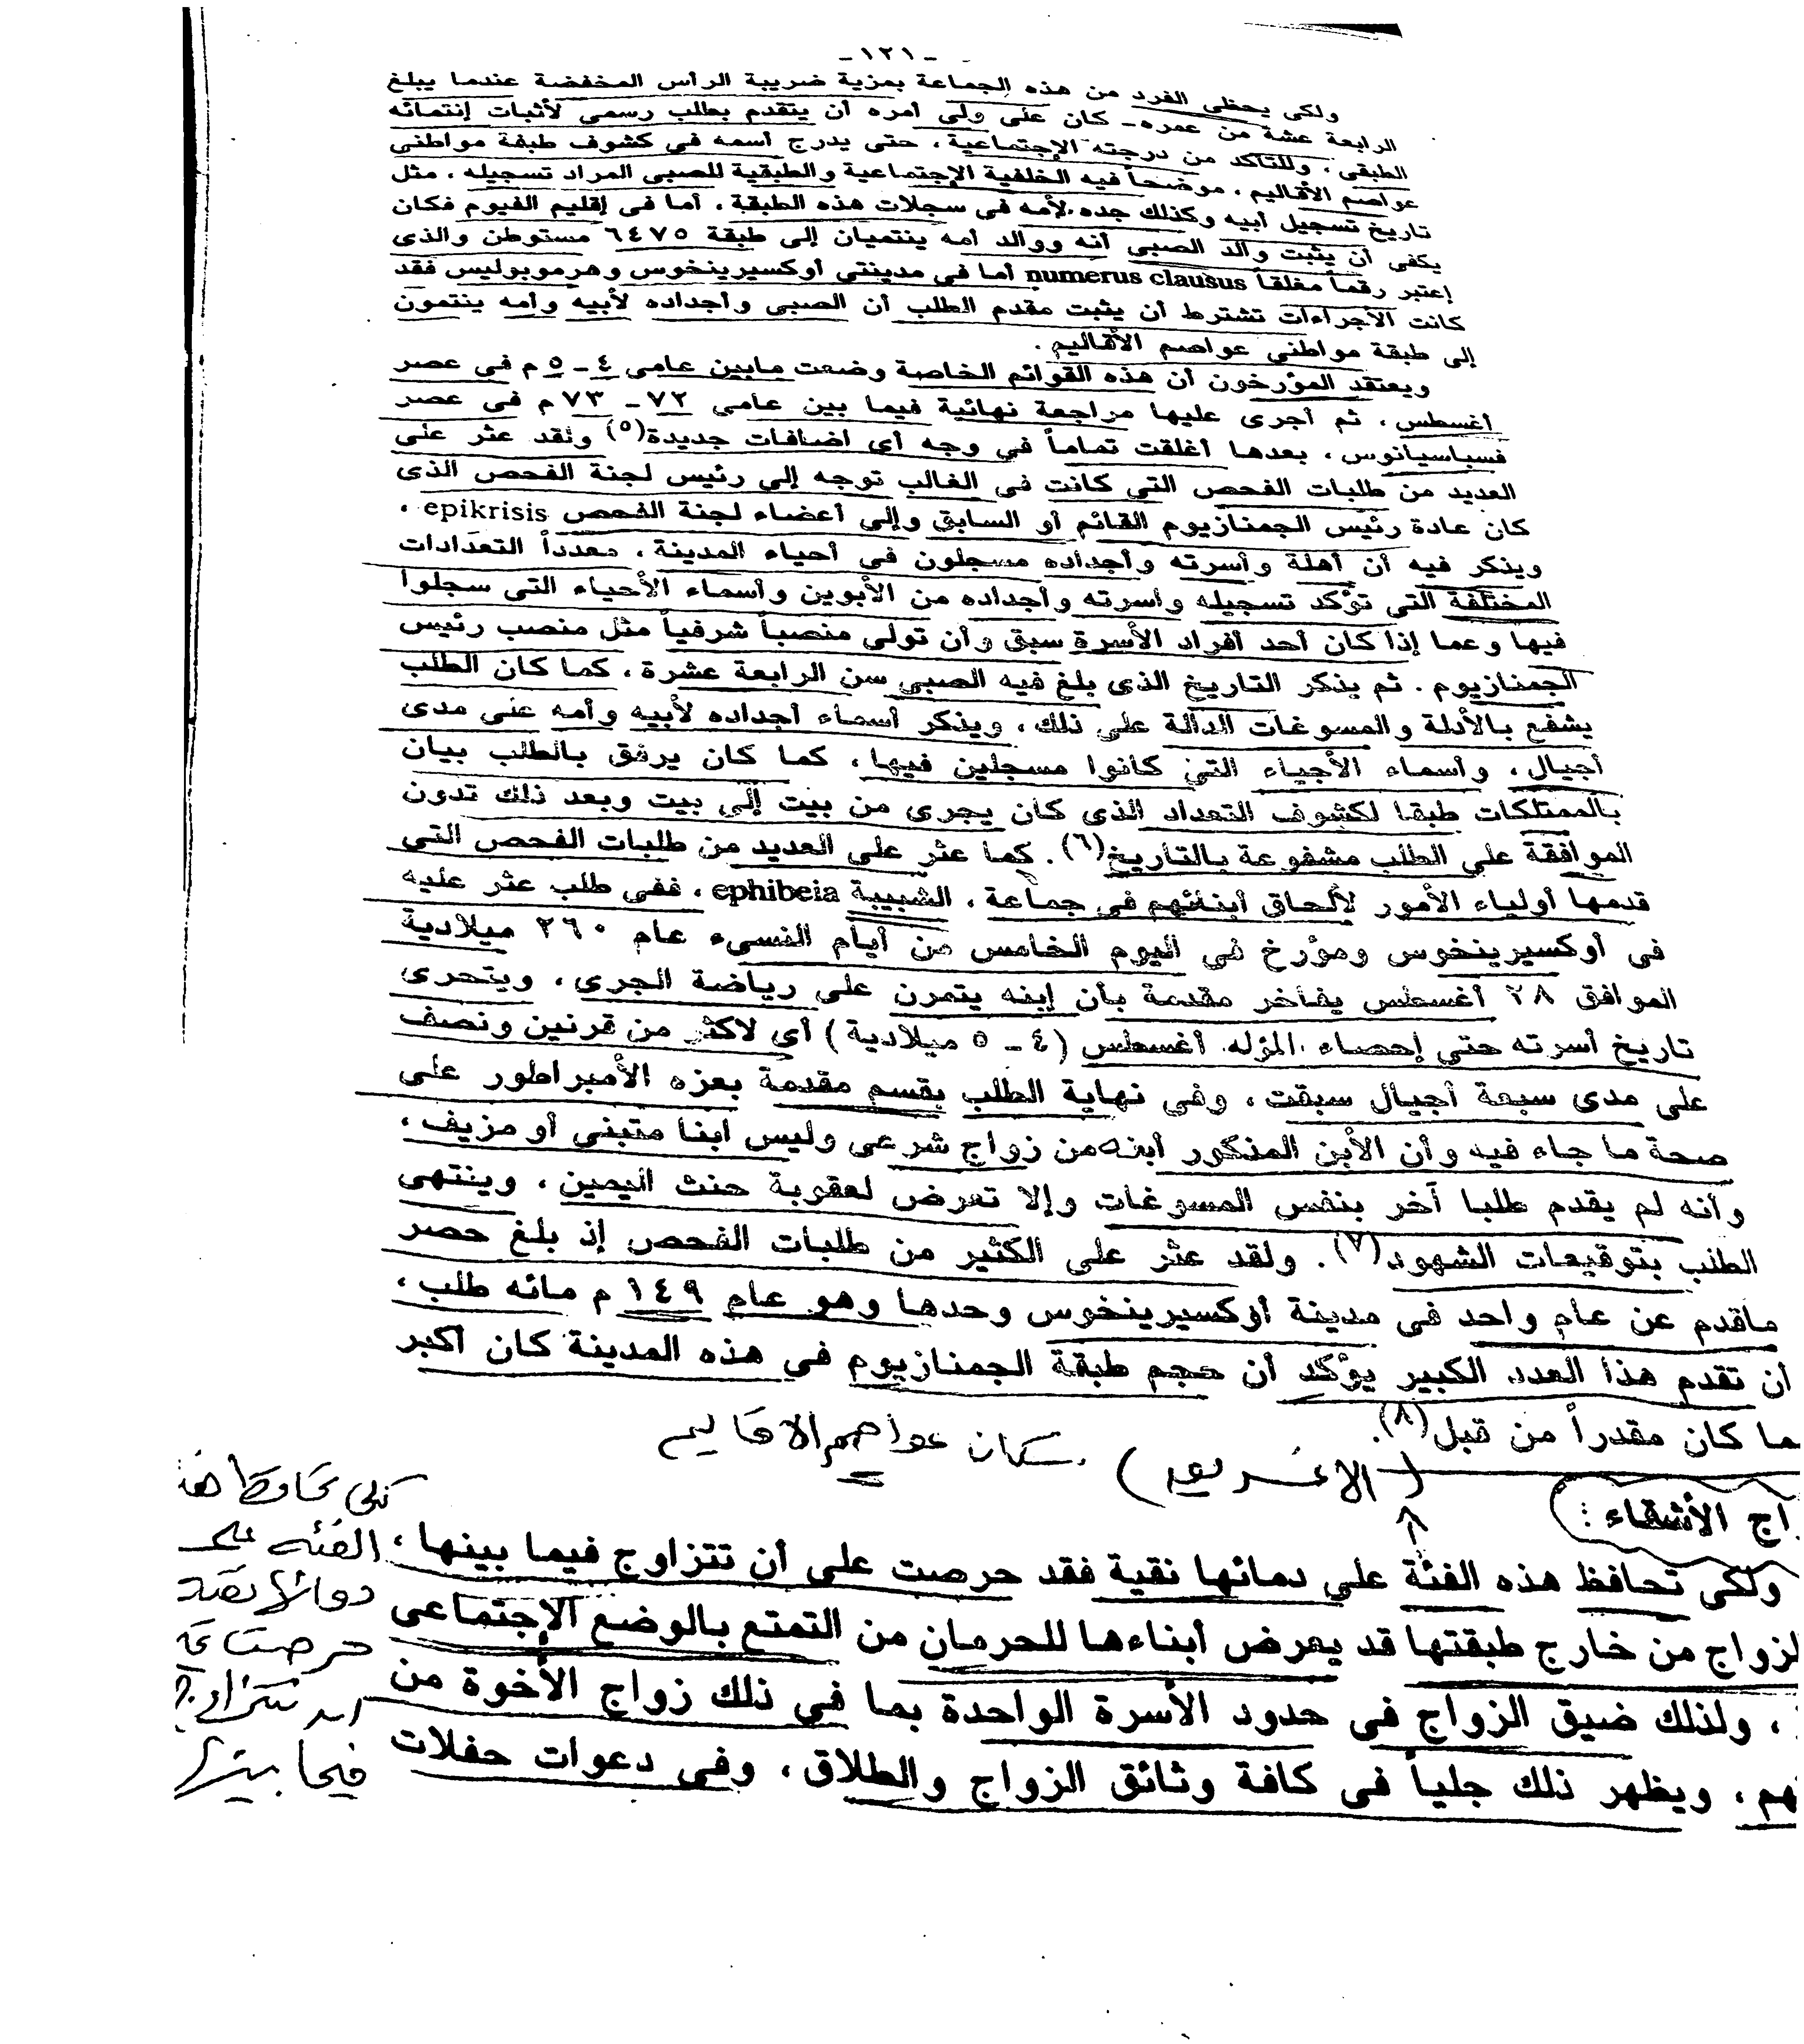 -١٢١-
ولكى يحظى الفرد من هذه الجماعة بمزية ضريبة الرأس المخفضة عندما يبلغ
الرابعة عشة من عمره- كان على ولى أمره أن يتقدم بطلب رسمى لأثبات إنتمائه
الطبقى، وللتأكد من درجته الإجتماعية، حتى يدرج أسمه فى كشوف طبقة مواطنى
عواصم الأقاليم، موضحاً فيه الخلفية الإجتماعية والطبقية للصبى المراد تسجيله، مثل
تاريخ تسجيل أبيه وكذلك جده لأمه فى سجلات هذه الطبقة، أما فى إقليم الفيوم فكان
يكفى أن يثبت والد الصبى أنه ووالد أمه ينتميان إلى طبقة ٦٤٧٥ مستوطن والذى
إعتبر رقماً مغلقاً numerus clausus أما فى مدينتى أوكسيرينخوس وهرموبوليس فقد
كانت الأجراءات تشترط أن يثبت مقدم الطلب أن الصبى وأجداده لأبيه وأمه ينتمون
إلى طبقة مواطنى عواصم الأقاليم.
ويعتقد المؤرخون أن هذه القوائم الخاصة وضعت مابين عامى ٤ - ٥ م فى عصر
أغسطس، ثم أجرى عليها مراجعة نهائية فيما بين عامى ٧٢- ٧٣ م فى عصر
فسباسيانوس، بعدها أغلقت تماماً فى وجه أى اضافات جديدة(٥) ولقد عثر على
العديد من طلبات الفحص التى كانت فى الغالب توجه إلى رئيس لجنة الفحص الذى
كان عادة رئيس الجمنازيوم القائم أو السابق وإلى أعضاء لجنة الفحص epikrisis .
ويذكر فيه أن أهلة وأسرته وأجداده مسجلون فى أحياء المدينة، معدداً التعدادات
المختلفة التى تؤكد تسجيله وأسرته وأجداده من الأبوين وأسماء الأحياء التى سجلوا
فيها وعما إذا كان أحد أفراد الأسرة سبق وأن تولى منصباً شرفياً مثل منصب رئيس
الجمنازيوم. ثم يذكر التاريخ الذى بلغ فيه الصبى سن الرابعة عشرة، كما كان الطلب
يشفع بالأدلة والمسوغات الدالة على ذلك، ويذكر أسماء أجداده لأبيه وأمه على مدى
أجيال، وأسماء الأحياء التى كانوا مسجلين فيها، كما كان يرفق بالطلب بيان
بالممتلكات طبقا لكشوف التعداد الذى كان يجرى من بيت إلى بيت وبعد ذلك تدون
الموافقة على الطلب مشفوعة بالتاريخ(٦). كما عثر على العديد من طلبات الفحص التى
قدمها أولياء الأمور لألحاق أبنائهم فى جماعة، الشبيبة ephibeia ، ففى طلب عثر عليه
فى أوكسيرينخوس ومؤرخ فى اليوم الخامس من أيام النسىء عام ٢٦٠ ميلادية
الموافق ٢٨ أغسطس يفاخر مقدمة بأن إبنه يتمرن على رياضة الجرى، ويتحرى
تاريخ أسرته حتى إحصاء المؤله أغسطس (٤ - ٥ ميلادية) أى لاكثر من قرنين ونصف
على مدى سبعة أجيال سبقت، وفى نهاية الطلب يقسم مقدمة بعزه الأمبراطور على
صحة ما جاء فيه وأن الأبن المذكور أبنه من زواج شرعى وليس أبنا متبنى أو مزيف،
وأنه لم يقدم طلبا آخر بنفس المسوغات وإلا تعرض لعقوبة حنث اليمين، وينتهى
الطلب بتوقيعات الشهود(٧). ولقد عثر على الكثير من طلبات الفحص إذ بلغ حصر
ماقدم عن عام واحد فى مدينة أوكسيرينخوس وحدها وهو عام ١٤٩ م مائه طلب،
أن تقدم هذا العدد الكبير يؤكد أن حجم طبقة الجمنازيوم فى هذه المدينة كان أكبر
ما كان مقدراً من قبل(٨).
سكان عواصم الاقاليم
اج الأشقاء :
ولكى تحافظ هذه الفئة على دمائها نقية فقد حرصت على أن تتزاوج فيما بينها،
لزواج من خارج طبقتها قد يعرض أبناءها للحرمان من التمتع بالوضع الإجتماعى
، ولذلك ضيق الزواج فى حدود الأسرة الواحدة بما فى ذلك زواج الأخوة من
هم، ويظهر ذلك جلياً فى كافة وثائق الزواج والطلاق، وفى دعوات حفلات
لكى تحافظ هذه
الفئه على
دمائها نقيه
حرصت على
ان تتزاوج
فيما بينها